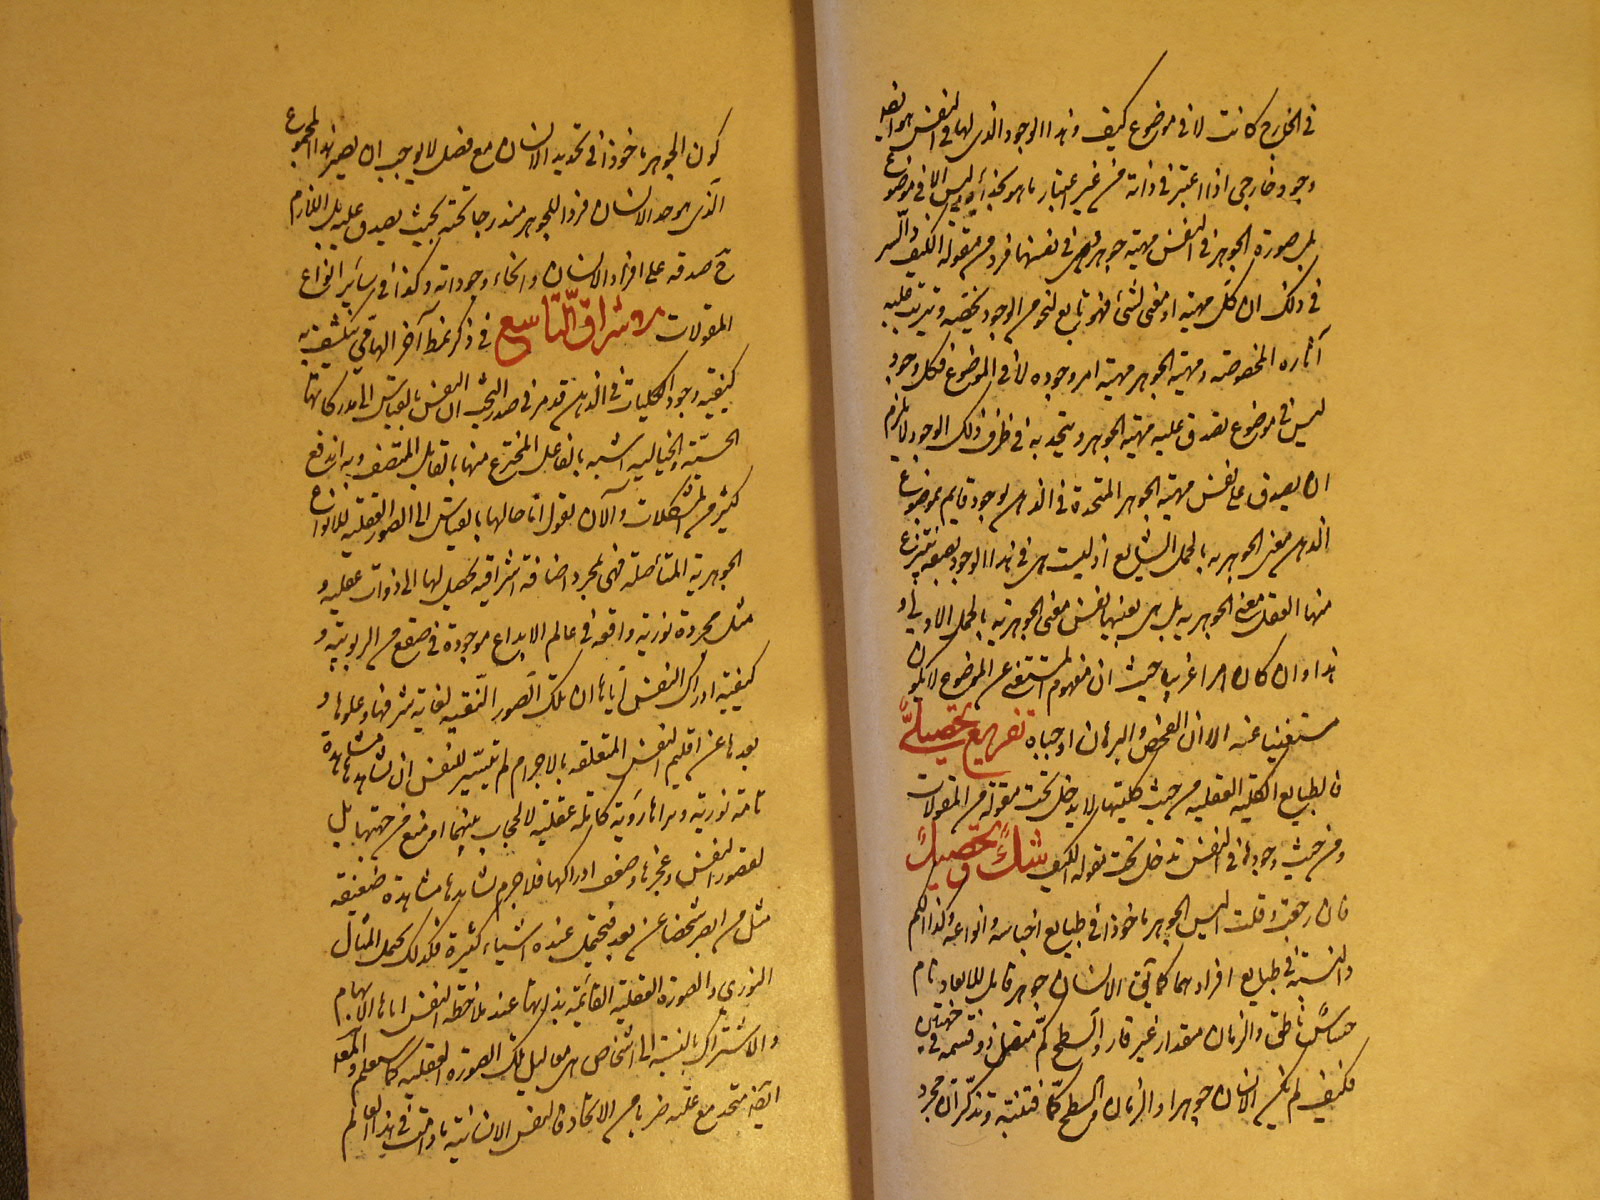 في الخارج كانت لا في موضوع كيف وهذا الوجود الذي لها في النفس هو ايضا
وجود خارجي اذا اعتبر في ذاته من غير اعتبار ما هو بحذائه ليس الا في موضوع
بل صورة الجوهر في النفس مهية جوهر وهي في نفسها فرد من مقولة الكيف والسر
في ذلك ان كل مهية او معنى لشئ فهو تابع لنحو من الوجود يختص به ويترتب عليه
آثاره المخصوصة ومهية الجوهر مهية امر وجوده لا في الموضوع فكل وجود
ليس في موضوع يصدق عليه مهية الجوهر ويتحد به في ظرف ذلك الوجود لا يلزم
ان يصدق على نفس مهية الجوهر المتحدة في الذهن لوجود قايم بموضوع
الذهن معنى الجوهرية بالحمل الشايع اذ ليست هي في هذا الوجود بصفة ينتزع
منها العقل معنى الجوهرية بل هي بعينها نفس معنى الجوهرية بالحمل الاولى و
هذا وان كان امرا غريبا حيث ان مفهوم المستغنى عن الموضوع لا يكون
مستغنيا عنه الا ان الفحص والبرهان اوجباه تفريع تحصيلي
فالطبايع الكلية العقلية من حيث كليتها لا يدخل تحت مقولة من المقولات
ومن حيث وجودها في النفس تدخل تحت مقولة الكيف شك وتحصيل
فان رجعت وقلت اليس الجوهر ماخوذا في طبايع اجناسه وانواعه وكذا الكم
والنسبة في طبايع افرادهما كما يق الانسان جوهر قابل للابعاد نام
حساس ناطق والزمان مقدار غير قار والسطح كم متصل ذو قسمة في جهتين
فكيف لم يكن الانسان جوهرا والزمان والسطح كما فتنبه وتذكر ان مجرد
كون الجوهر ماخوذا في تحديد الانسان مع فصل لا يوجب ان يصير هذا المجموع
الذي هو حد الانسان فردا للجوهر مندرجا تحته بحيث يصدق عليه بل اللازم
ح صدقه على افراد الانسان وانحاء وجوداته وكذا في ساير انواع
المقولات الاشراق التاسع في ذكر نمط آخر الهامي ينكشف به
كيفية وجود الكليات في الذهن قد مر في صدر البحث ان النفس بالقياس الى مدركاتها
الحسية والخيالية اشبه بالفاعل المخترع منها بالقابل المتصف وبه اندفع
كثير من المشكلات والآن نقول اما حالها بالقياس الى الصور العقلية للانواع
الجوهرية المتأصلة فهي بمجرد اضافة اشراقية تحصل لها الى ذوات عقلية و
مثل مجردة نورية واقعة في عالم الابداع موجودة في صقع من الربوبية و
كيفية ادراك النفس اياها ان تلك الصور النقية لغاية شرفها وعلوها و
بعدها عن اقليم النفس المتعلقة بالاجرام لم تتيسر للنفس ان تشاهدها مشاهدة
تامة نورية وتراها رؤية كاملة عقلية لا لحجاب بينهما او منع من جهتها بل
لقصور النفس وعجزها وضعف ادراكها فلا جرم تشاهدها مشاهدة ضعيفة
مثل من ابصر شخصا عن بعد فيحتمل عنده اشياء كثيرة فكذلك يحتمل المثال
النوري والصورة العقلية القائمة بذاتها عند ملاحظة النفس اياها الابهام
والاشتراك بالنسبة الى اشخاص هي معاليل تلك الصورة العقلية كما ستعلم والمعلول
متحد مع علته ضربا من الاتحاد فالنفس الانسانية ما دامت في هذا العالم